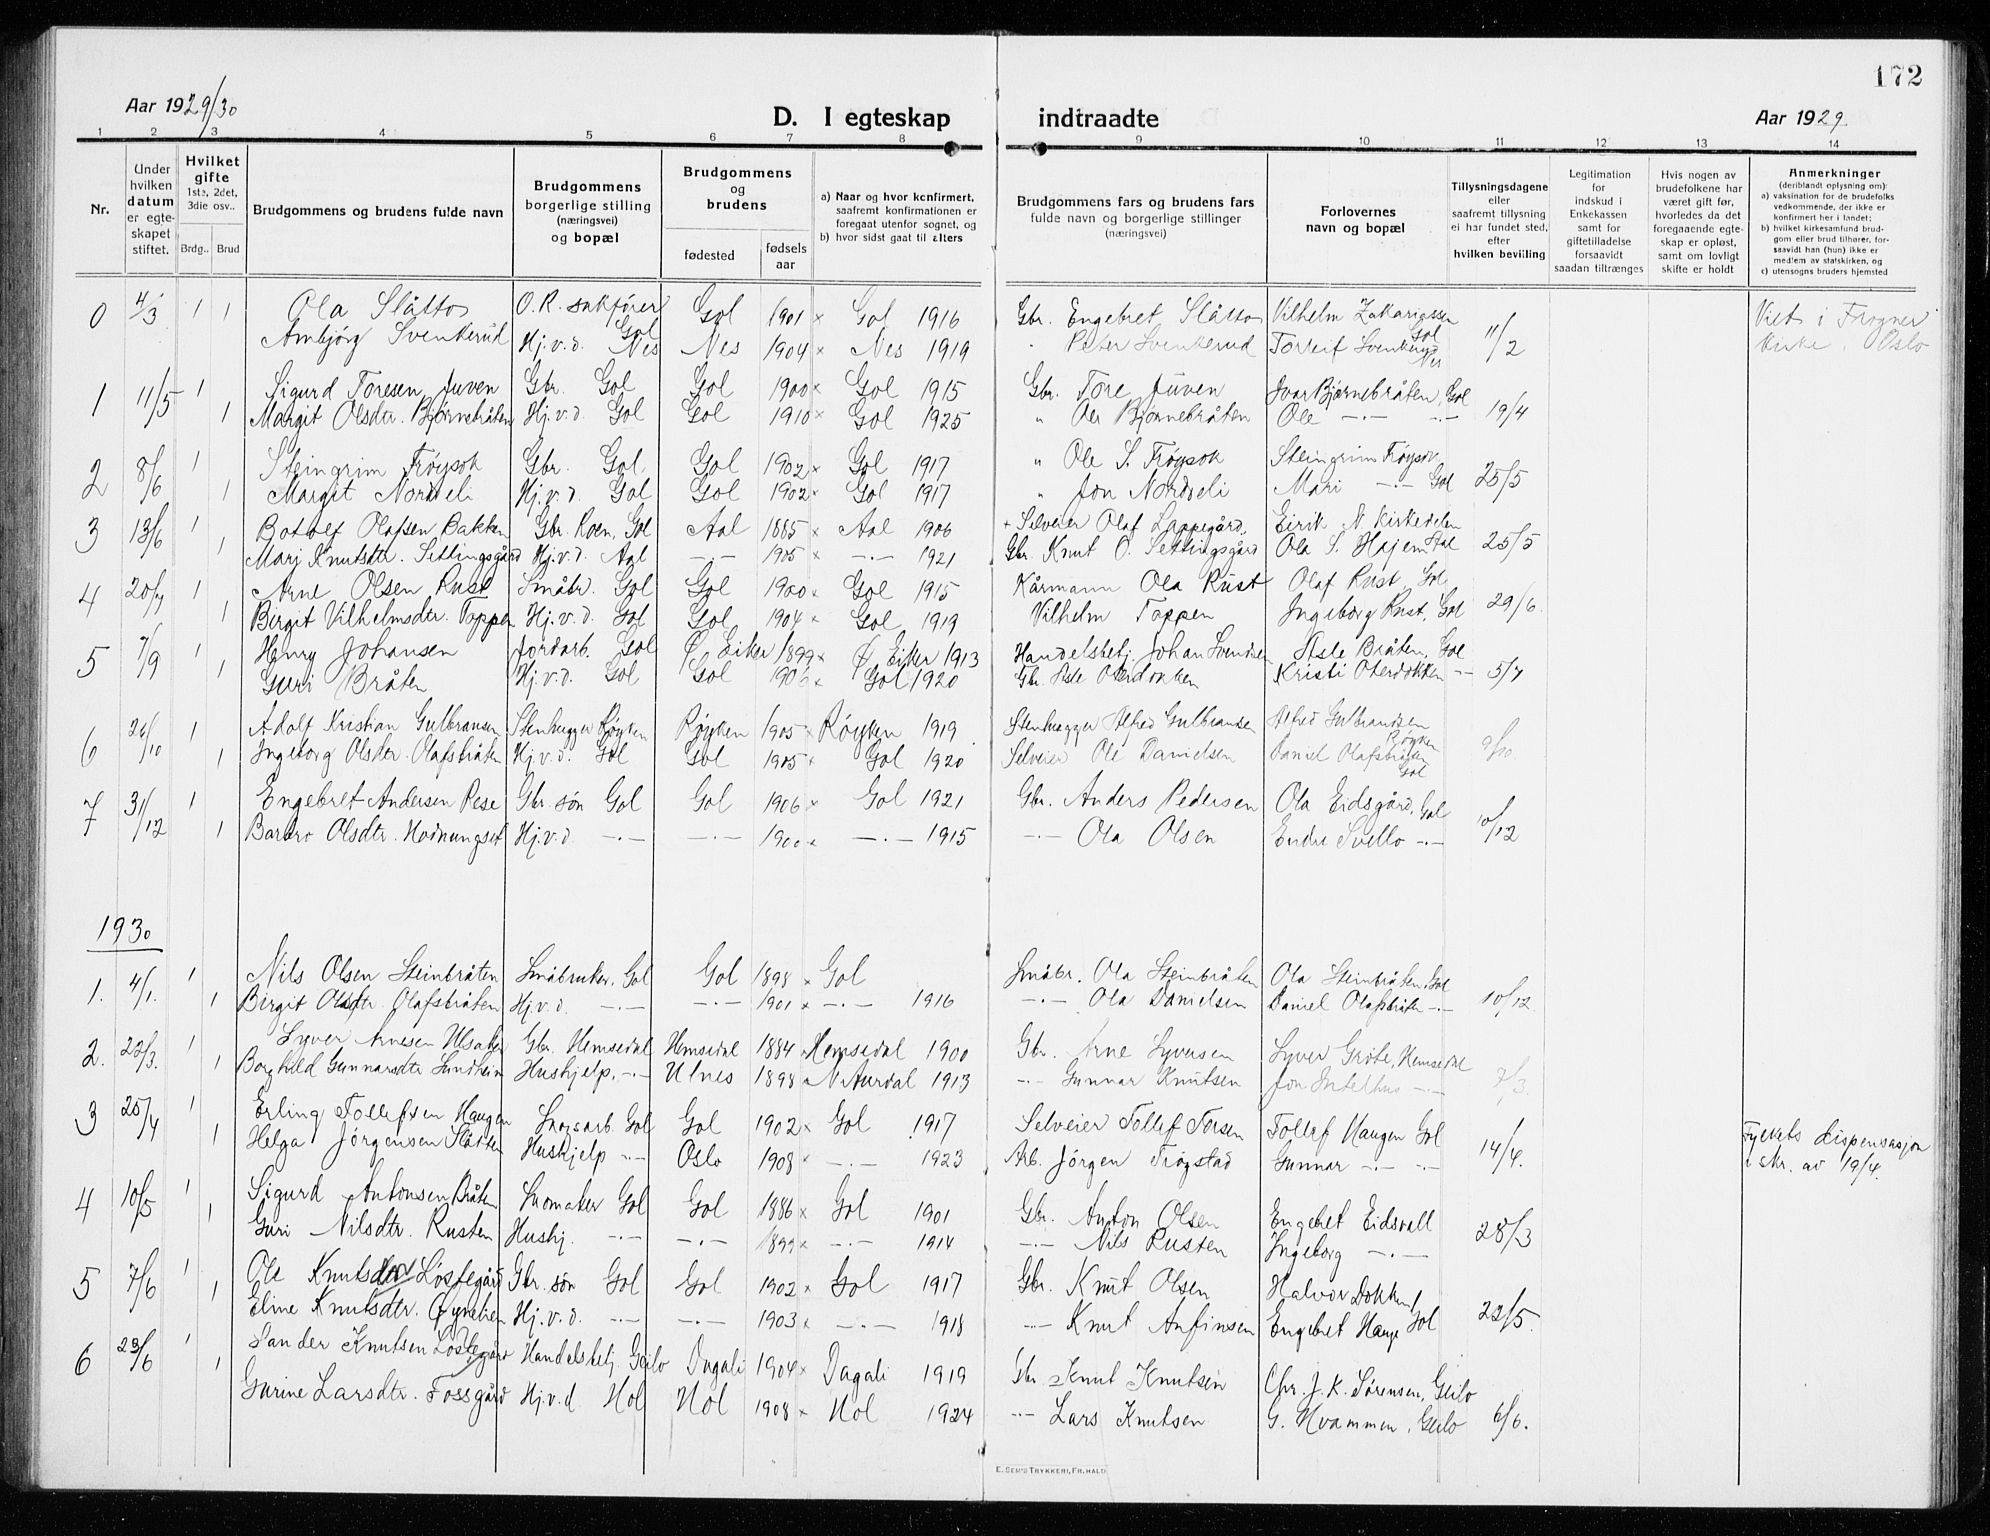 172
Aar 1929/30
D. I egteskap indtraadte
Aar 1929.
1 2 3 4 5 6 7 8 9 10 11 12 13 14
Nr.
Under hvilken datum er egteskapet stiftet.
Hvilket gifte
1ste, 2det, 3die osv..
Brdg.. Brud
Brudgommens og brudens fulde navn
Brudgommens borgerlige stilling (næringsvei) og bopæl
Brudgommens og brudens
fødested
fødsels aar
a) Naar og hvor konfirmert, saafremt konfirmationen er foregaat utenfor sognet, og
b) hvor sidst gaat til alters
Brudgommens fars og brudens fars fulde navn og borgerlige stillinger (næringsvei)
Forlovernes navn og bopæl
Tillysningsdagene eller saafremt tillysning ei har fundet sted, efter hvilken bevilling
Legitimation for indskud i Enkekassen samt for giftetilladelse forsaavidt saadan tiltrænges
Hvis nogen av brudefolkene har været gift før, hvorledes da det foregaaende egteskap er opløst, samt om lovligt skifte er holdt
Anmerkninger
(deriblandt oplysning om):
a) vaksination for de brudefolks vedkommende, der ikke er konfirmert her i landet;
b) hvilket kirkesamfund brudgom eller brud tilhører, forsaavidt han (hun) ikke er medlem av statskirken, og
c) utensogns bruders hjemsted
0 4/3 1 1 Ola Slåtto O.R. sakfører Gol Gol 1901 x Gol 1916 Gbr. Engebret Slåtto Vilhelm Zakariassen Gol 11/2 Viet i Frogner
Ambjørg Svenkerud Hj.v.d. Nes Nes 1904 x Nes 1919 " Peter Svenkerud Torleif Svenkerud Nes kirke, Oslo
1 11/5 1 Sigurd Toresen Juven Gbr. Gol Gol 1900 x Gol 1915 Gbr. Tore Juven Ivar Bjørnebråten, Gol 19/4
1 Margit Olsdtr. Bjørnebråten Hj.v.d. Gol Gol 1910 x Gol 1925 " Ole Bjørnebråten Ole -.- -.-
2 8/6 1 Steingrim Frøysok Gbr. Gol. Gol 1902 x Gol 1917 " Ole S. Frøysok Steingrim Frøysok 25/5
1 Margit Nordveli Hj.v.d. Gol Gol 1902 x Gol 1917 " Jon Nordveli Mari -.- Gol
3 13/6 1 Botolf Olafsen Bakken Gbr. Roen, Gol Aal 1885 x Aal 1906 + Selveier Olaf Lappegård, Eirik N. Kirkedelen 25/5
1 Mari Knutsdtr. Settingsgård Hj.v.d. Aal -.- 1905 x -.- 1921 Gbr. Knut O. Settingsgård Ola S. Hajem Aal
4 20/7 1 Arne Olsen Rust Småbr. Gol Gol 1900 x Gol 1915 Kårmann Ola Rust Olaf Rust, Gol 29/6.
1 Birgit Vilhelmsdtr. Toppen Hj.v.d. Gol Gol 1904 x Gol 1919 Vilhelm Toppen Ingeborg Rust, Gol
5 7/9 1 Henry Johansen Jordarb. Gol Ø Eiker 1899 x Ø Eiker 1913 Handelsbetj. Johan Svendsen Asle Bråten, Gol 5/7
1 Guri Bråten Hj.v.d. Gol Gol 1906 x Gol 1920 Gbr. Asle Oterdokken Kristi Oterdokken -.-
6 26/10 1 Adolf Kristian Gulbransen Stenhugger Røyken Røyken 1905 x Røyken 1919 Stenhugger Alfred Gulbransen Alfred Gulbrandsen Røyken 9/10.
1 Ingeborg Olsdtr. Olafsbråten Hj.v.d. Gol Gol 1905 x Gol 1920 Selveier Ole Danielsen Daniel Olafsbråten Gol
7 31/12 1 Engebret Andersen Pese Gbr. søn Gol Gol 1906 x Gol 1921 Gbr. Anders Pedersen Ola Eidsgård, Gol 10/12
1 Barbro Olsdtr. Hodnungset Hj.v.d. -.- -.- 1900 x -.- 1915 -.- Ola Olsen Endre Svello -.-
1930
1. 4/1. 1 Nils Olsen Steinbråten Småbruker, Gol Gol 1898 x Gol Småbr. Ola Steinbråten Ola Steinbråten, Gol 10/12
1 Birgit Olsdtr. Olafsbråten Hj.v.d. -.- -.- 1901 x -.- 1916 -.- Ola Danielsen Daniel Olafsbråten -.-
2. 22/3. 1 Syver Arnesen Ulsaker Gbr. Hemsedal Hemsedal 1884 x Hemsedal 1900 Gbr. Arne Syversen Syver Grøte, Hemsedal 7/3.
1 Borghild Gunnarsdtr Sundheim Hushjelp. -.- Ulnes 1898 x N. Aurdal 1913 -.- Gunnar Knutsen Jon Intelhus -.-
3 25/4 1 Erling Tollefsen Haugen Skogsarb. Gol Gol 1902 x Gol 1917 Selveier Tollef Torsen Tollef Haugen Gol 14/4. Fylkets dispensasjon
1 Helga Jørgensen Slåtten Hushjelp -.- Oslo 1908 x -.- 1923 Arb. Jørgen Trøgstad Gunnar -.- -.- i skr. av 19/4.
4 10/5 1 Sigurd Antonsen Bråten Skomaker Gol Gol 1886 x Gol 1901 Gbr. Anton Olsen Engebret Eidsvoll 28/3
1 Guri Nilsdtr. Rusten Hushj. -.- -.- 1899 x -.- 1914 -.- Nils Rusten Ingeborg -.-
5 7/6 1 Ole Knutsen Løstegård Gbr. søn Gol Gol 1902 x Gol 1917 Gbr. Knut Olsen Halvor Dokken Gol 22/5.
1 Eline Knutsdtr. Øynelien Hj.v.d. -.- -.- 1903 x -.- 1918 -.- Knut Anfinsen Engebret Hauge
6 23/6 1 Sander Knutsen Løstegård Handelsbetj. Geilo Dagali 1904 x Dagali 1919 Gbr Knut Knutsen Chr. J. K. Sørensen, Geilo 6/6.
1 Gurine Larsdtr. Fossgård Hj.v.d Hol Hol 1908 x Hol 1924 -.- Lars Knutsen G. Hvammen, Geilo
E. SEM'S TRYKKERI, FR.HALD